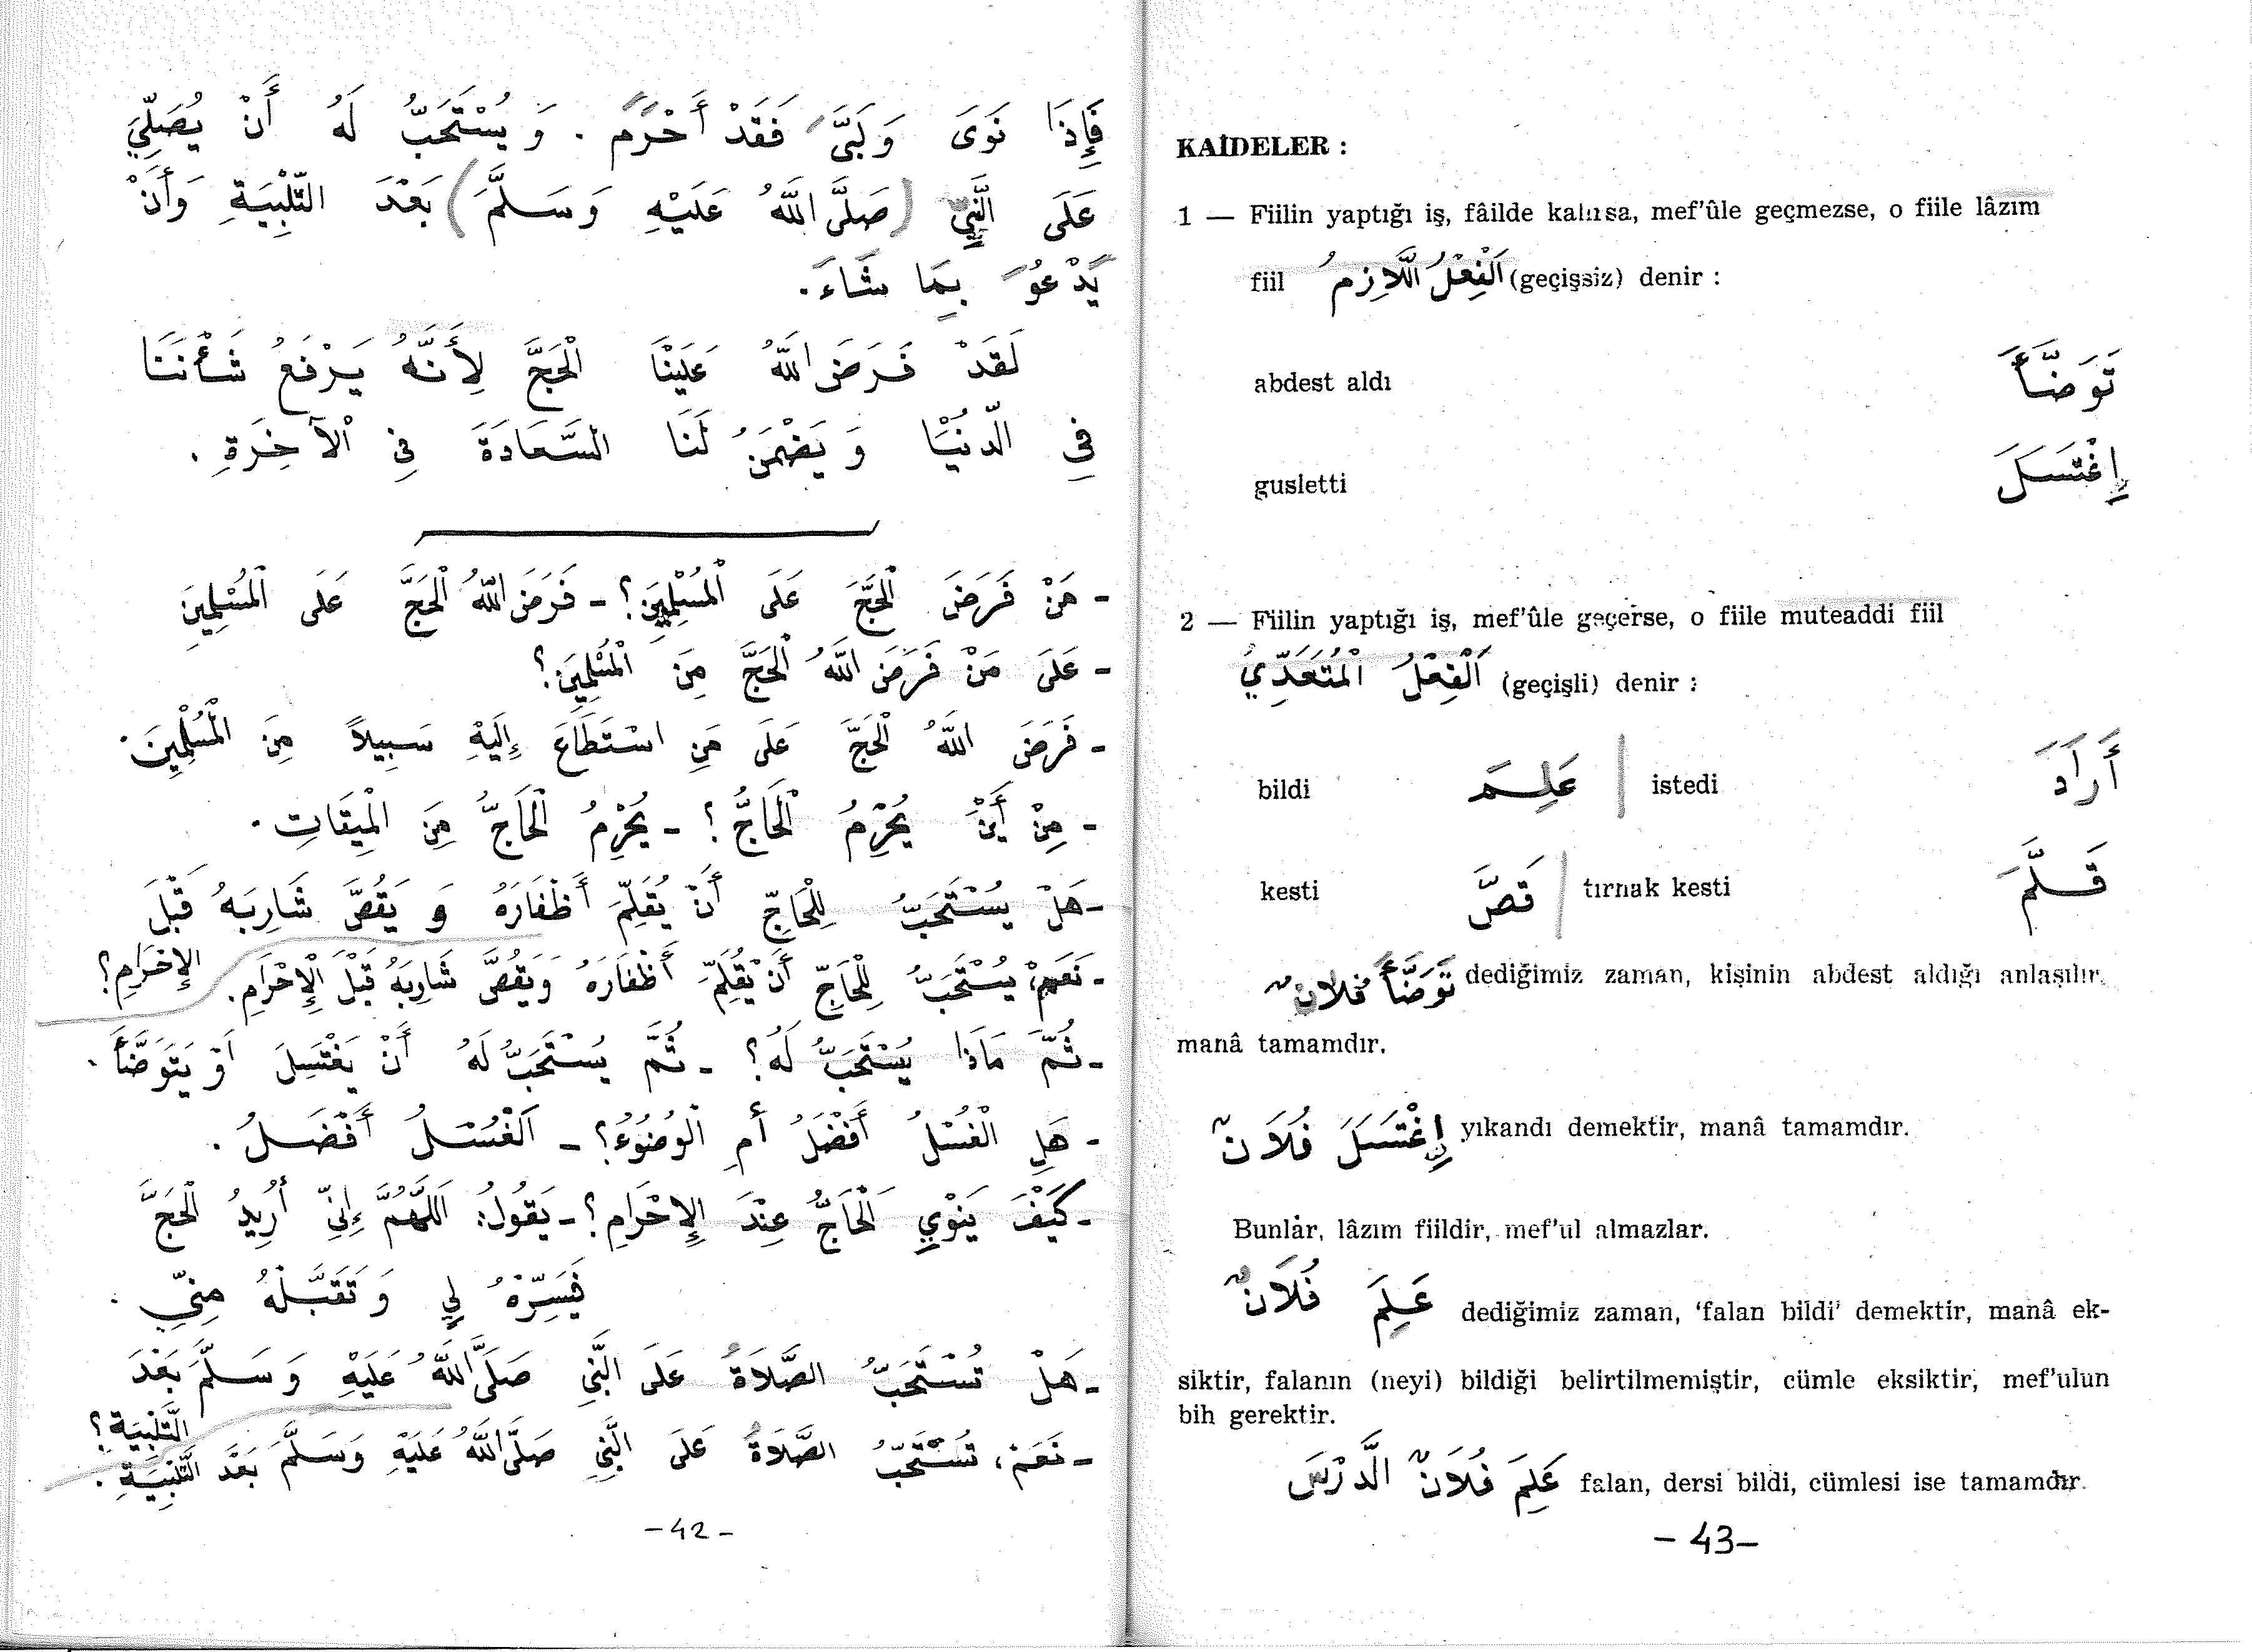 فَإِذَا نَوَى وَلَبَّى فَقَدْ أَحْرَمَ . وَيُسْتَحَبُّ لَهُ أَنْ يُصَلِّيَ
عَلَى النَّبِيِّ (صَلَّى اللّٰهُ عَلَيْهِ وَسَلَّمَ) بَعْدَ التَّلْبِيَةِ وَأَنْ
يَدْعُوَ بِمَا شَاءَ.
لَقَدْ فَرَضَ اللّٰهُ عَلَيْنَا الْحَجَّ لِأَنَّهُ يَرْفَعُ شَأْنَنَا
فِي الدُّنْيَا وَيَضْمَنُ لَنَا السَّعَادَةَ فِي الْآخِرَةِ .
- مَنْ فَرَضَ الْحَجَّ عَلَى الْمُسْلِمِينَ؟ - فَرَضَ اللّٰهُ الْحَجَّ عَلَى الْمُسْلِمِينَ
- عَلَى مَنْ فَرَضَ اللّٰهُ الْحَجَّ مِنَ الْمُسْلِمِينَ؟
- فَرَضَ اللّٰهُ الْحَجَّ عَلَى مَنِ اسْتَطَاعَ إِلَيْهِ سَبِيلاً مِنَ الْمُسْلِمِينَ.
- مِنْ أَيْنَ يُحْرِمُ الْحَاجُّ؟ - يُحْرِمُ الْحَاجُّ مِنَ الْمِيقَاتِ.
- هَلْ يُسْتَحَبُّ لِلْحَاجِّ أَنْ يُقَلِّمَ أَظْفَارَهُ وَ يَقُصَّ شَارِبَهُ قَبْلَ
الإِحْرَامِ؟
- نَعَمْ، يُسْتَحَبُّ لِلْحَاجِّ أَنْ يُقَلِّمَ أَظْفَارَهُ وَيَقُصَّ شَارِبَهُ قَبْلَ الْإِحْرَامِ.
- ثُمَّ مَاذَا يُسْتَحَبُّ لَهُ؟ - ثُمَّ يُسْتَحَبُّ لَهُ أَنْ يَغْتَسِلَ أَوْ يَتَوَضَّأَ.
- هَلِ الْغُسْلُ أَفْضَلُ أَمِ الْوُضُوءُ؟ - اَلْغُسْلُ أَفْضَلُ.
- كَيْفَ يَنْوِي الْحَاجُّ عِنْدَ الإِحْرَامِ؟ - يَقُولُ: اَللّٰهُمَّ إِنِّي أُرِيدُ الْحَجَّ
فَيَسِّرْهُ لِي وَتَقَبَّلْهُ مِنِّي .
- هَلْ تُسْتَحَبُّ الصَّلَاةُ عَلَى النَّبِيِّ صَلَّى اللّٰهُ عَلَيْهِ وَسَلَّمَ بَعْدَ
التَّلْبِيَةِ؟
- نَعَمْ، تُسْتَحَبُّ الصَّلَاةُ عَلَى النَّبِيِّ صَلَّى اللّٰهُ عَلَيْهِ وَسَلَّمَ بَعْدَ التَّلْبِيَةِ.
- 42 -
KAİDELER :
1 — Fiilin yaptığı iş, fâilde kalırsa, mef'ûle geçmezse, o fiile lâzım
fiil اَلْفِعْلُ اللَّازِمُ (geçişsiz) denir :
abdest aldı تَوَضَّأَ
gusletti اِغْتَسَلَ
2 — Fiilin yaptığı iş, mef'ûle geçerse, o fiile muteaddi fiil
اَلْفِعْلُ الْمُتَعَدِّيُ (geçişli) denir :
bildi عَلِمَ istedi أَرَادَ
kesti قَصَّ tırnak kesti قَلَّمَ
تَوَضَّأَ فُلَانٌ dediğimiz zaman, kişinin abdest aldığı anlaşılır,
manâ tamamdır.
اِغْتَسَلَ فُلَانٌ yıkandı demektir, manâ tamamdır.
Bunlar, lâzım fiildir, mef'ul almazlar.
عَلِمَ فُلَانٌ dediğimiz zaman, 'falan bildi' demektir, manâ ek-
siktir, falanın (neyi) bildiği belirtilmemiştir, cümle eksiktir, mef'ulun
bih gerektir.
عَلِمَ فُلَانٌ الدَّرْسَ falan, dersi bildi, cümlesi ise tamamdır.
- 43 -